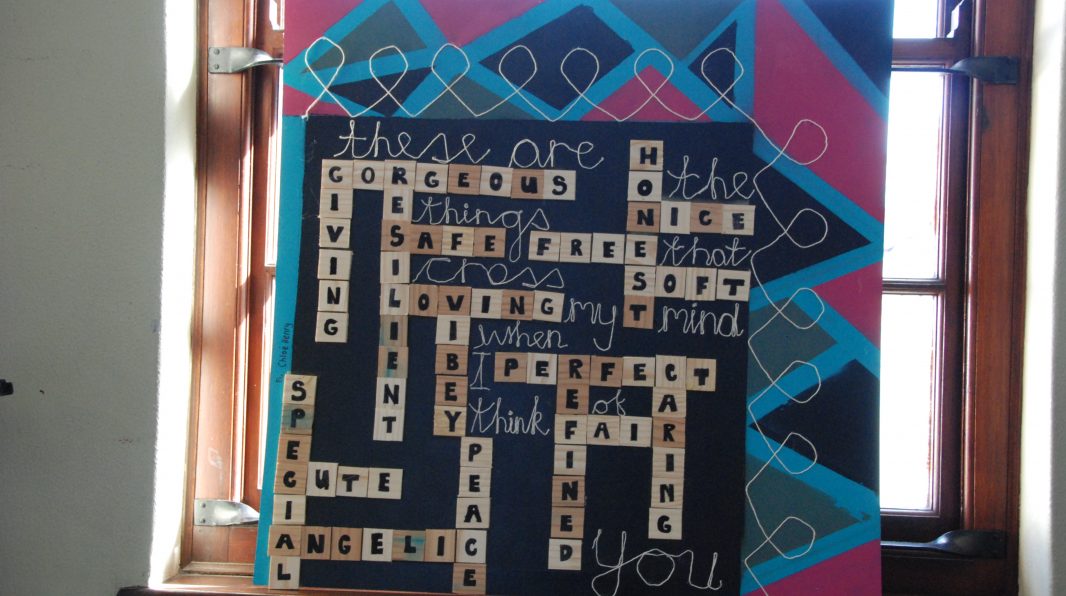 these are
HONEST
GORGEOUS
the
GIVING
RESILIENT
things
NICE
SAFE
FREE
that
cross
SOFT
LOVING
my
mind
VIBEY
when
I
PERFECT
REFINED
CARING
think
of
FAIR
SPECIAL
PEACE
CUTE
ANGELIC
you
Chloe Henry